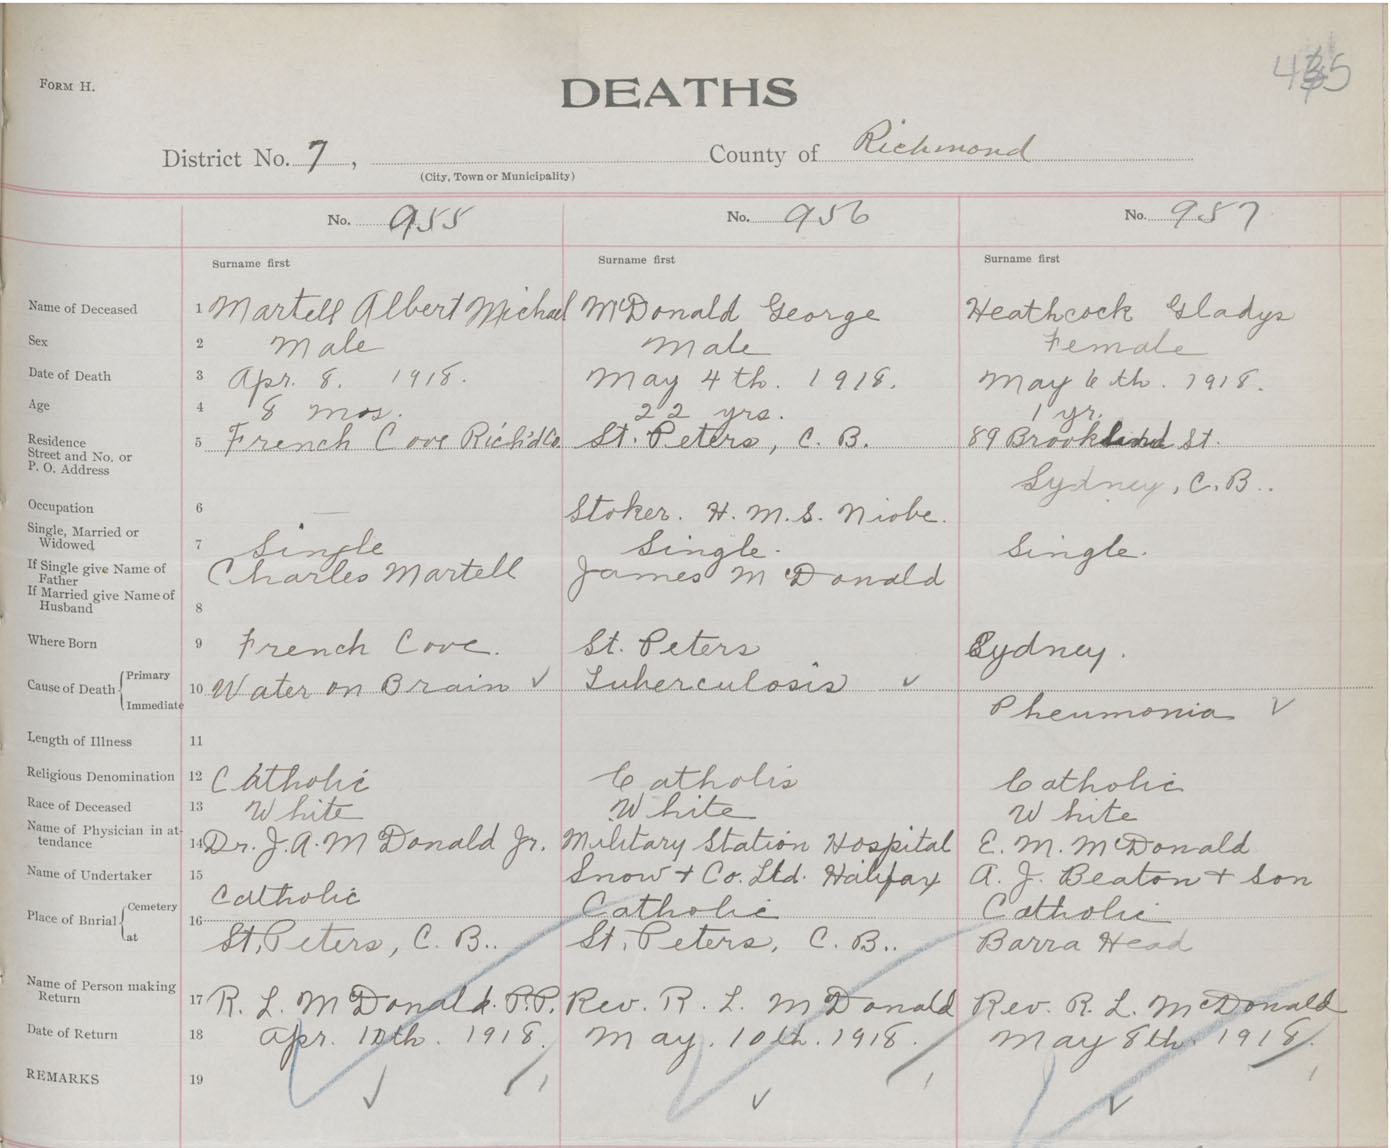 FORM H.
DEATHS
District No. 7, County of Richmond
(City, Town or Municipality)
No. 955 No. 956 No. 957
Surname first Surname first Surname first
Name of Deceased 1 Martell Albert Michael McDonald George Heathcock Gladys
Sex 2 Male Male Female
Date of Death 3 Apr. 8. 1918. May 4th. 1918. May 6th. 1918.
Age 4 8 mos. 22 yrs. 1 yr.
Residence 5 French Cove Rich'd Co. St. Peters, C. B. 89 Brookland St.
Street and No. or
P. O. Address Sydney, C. B..
Occupation 6 — Stoker. H. M. S. Niobe.
Single, Married or
Widowed 7 Single Single. Single.
If Single give Name of
Father Charles Martell James McDonald
If Married give Name of
Husband 8
Where Born 9 French Cove. St. Peters Sydney.
Cause of Death Primary 10 Water on Brain ✓ Tuberculosis ✓
Immediate Pneumonia ✓
Length of Illness 11
Religious Denomination 12 Catholic Catholic Catholic
Race of Deceased 13 White White White
Name of Physician in at-
tendance 14 Dr. J. A. McDonald Jr. Military Station Hospital E. M. McDonald
Name of Undertaker 15 Snow + Co. Ltd. Halifax A. J. Beaton + Son
Place of Burial Cemetery 16 Catholic Catholic Catholic
at St. Peters, C. B.. St. Peters, C. B.. Barra Head
Name of Person making
Return 17 R. L. McDonald. P.P. Rev. R. L. McDonald Rev. R. L. McDonald
Date of Return 18 Apr. 10th. 1918. May. 10th. 1918. May 8th. 1918.
REMARKS 19 ✓ ✓ ✓